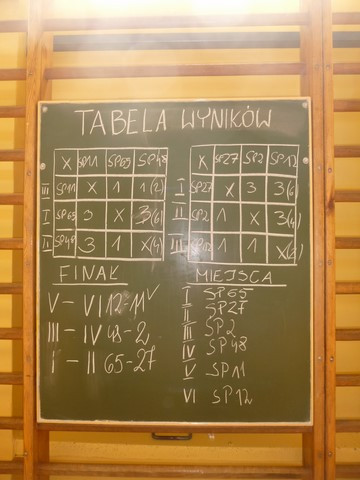 TABELA WYNIKÓW
X SP11 SP65 SP48
III SP11 X 1 1(2)
I SP65 3 X 3(6)
II SP48 3 1 X(4)
X SP27 SP2 SP12
I SP27 X 3 3(6)
II SP2 1 X 3(4)
III SP12 1 1 X(2)
FINAŁ
V - VI 12-11
III - IV 48-2
I - II 65-27
MIEJSCA
I SP65
II SP27
III SP2
IV SP48
V SP11
VI SP12